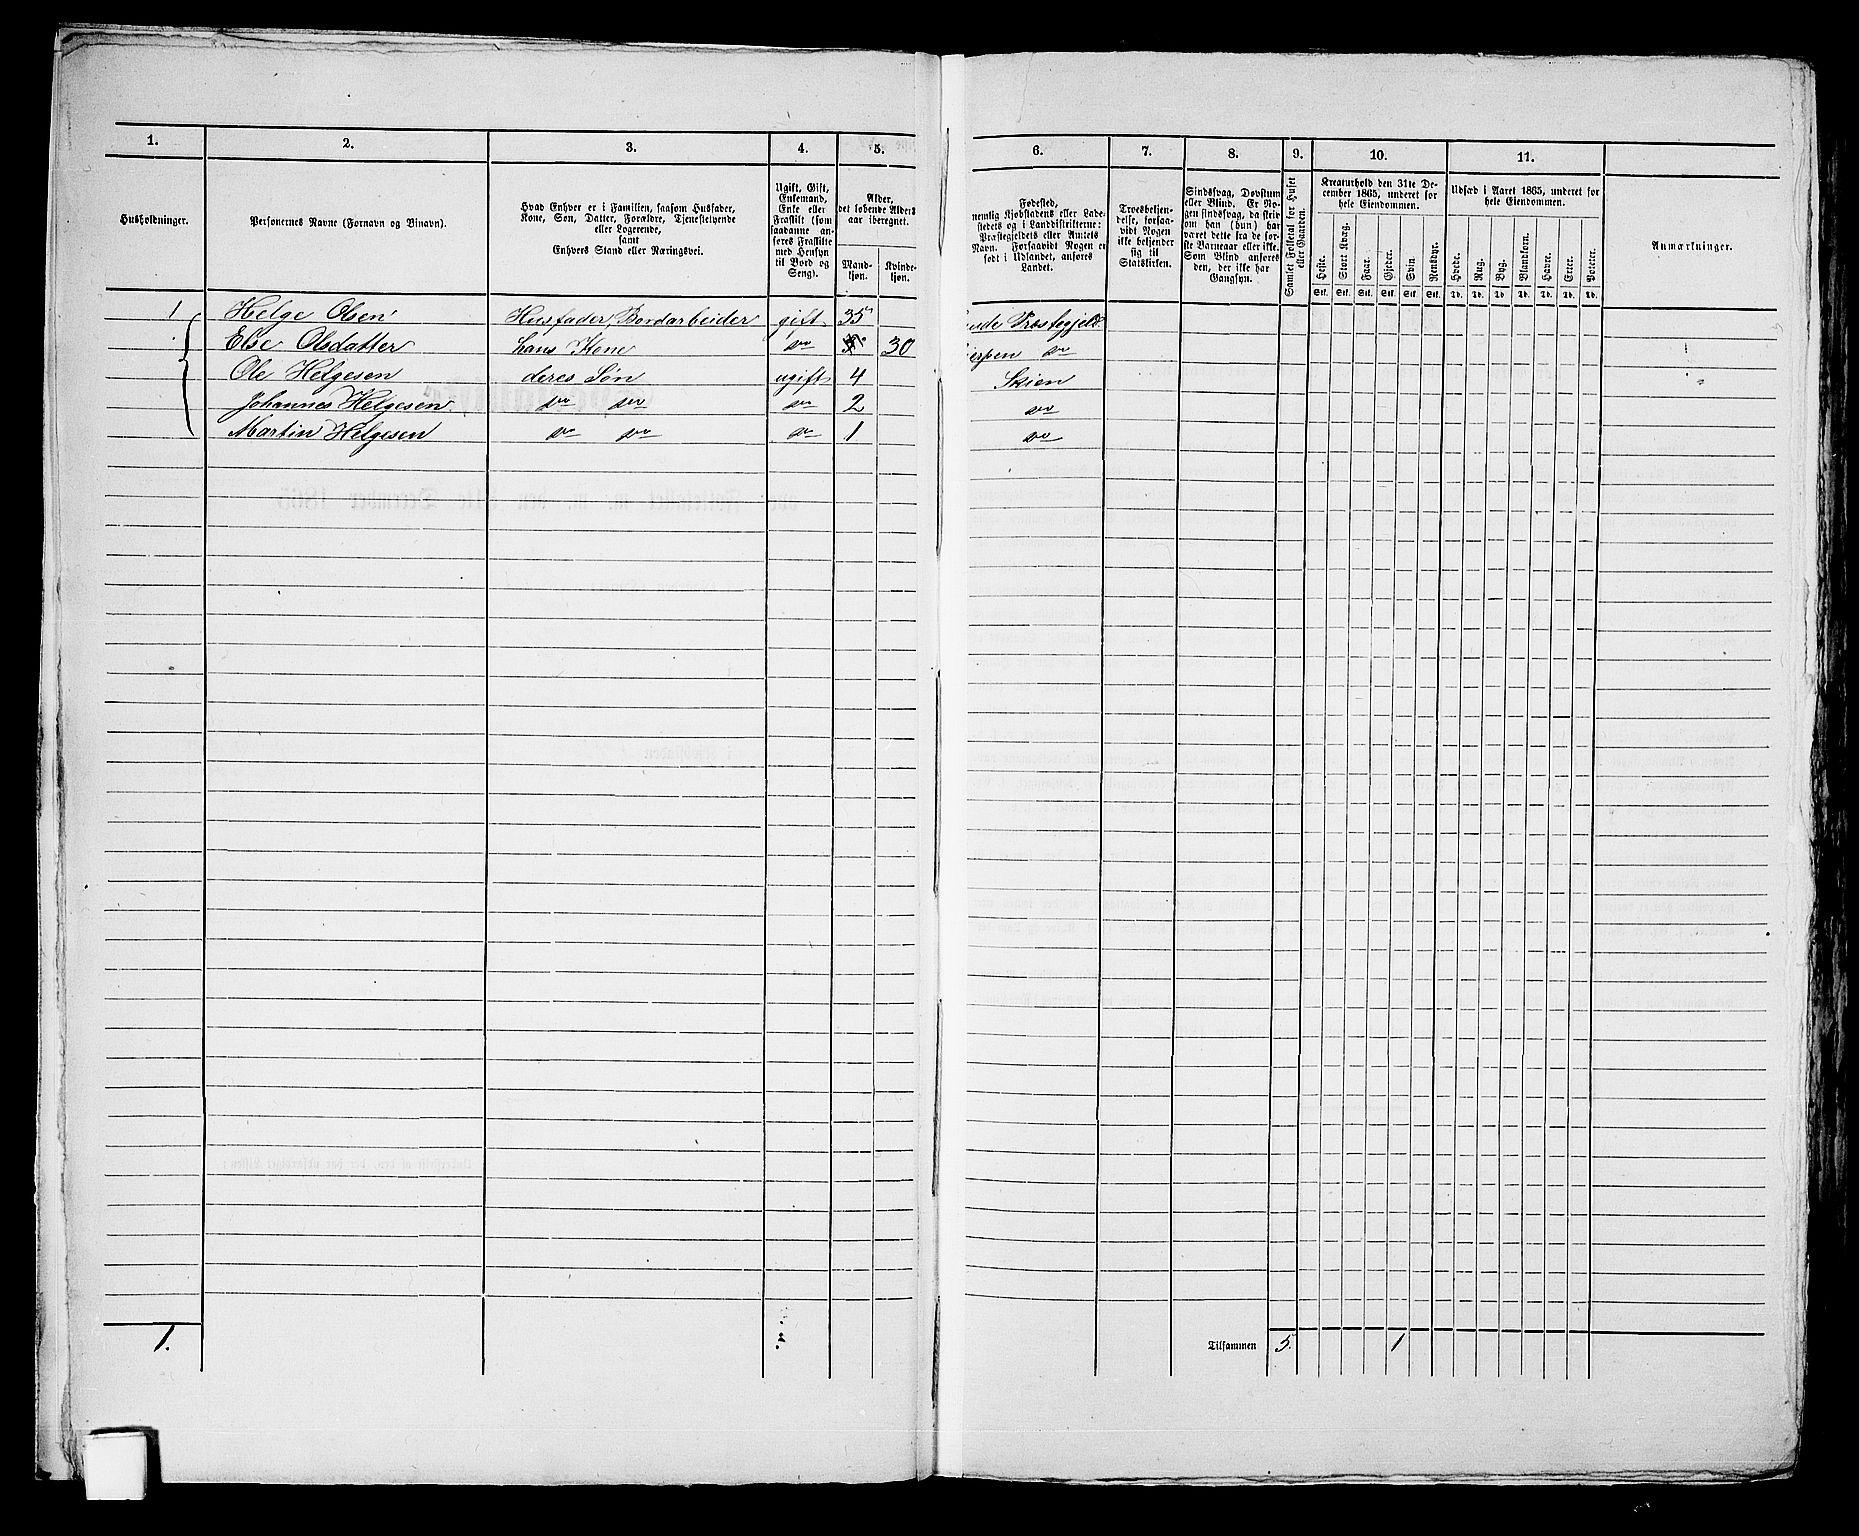 1. 2. 3. 4. 5. 6. 7. 8. 9. 10. 11.
Husholdninger.
Personernes Navne (Fornavn og Binavn).
Hvad Enhver er i Familien, saasom Husfader,
Kone, Søn, Datter, Forældre, Tjenestetyende
eller Logerende,
samt
Enhvers Stand eller Næringsvei.
Ugift, Gift,
Enkemand,
Enke eller
Fraskilt (som
saadanne an-
føres Fraskilte
med Hensyn
til Bord og
Seng).
Alder,
det løbende Alders-
aar iberegnet.
Mand-
kjøn.
Kvinde-
kjøn.
Fødested,
nemlig Kjøbstadens eller Lade-
stedets og i Landdistrikterne:
Præstegjeldets eller Amtets
Navn. Forsaavidt Nogen er
født i Udlandet, anføres
Landet.
Troesbekjen-
delse, forsaa-
vidt Nogen
ikke bekjender
sig til
Statskirken.
Sindssvag, Døvstum
eller Blind. Er No-
gen sindssvag, da skriv
om han (hun) har
været dette fra de før-
ste Barneaar eller ikke.
Som Blind anføres
den, der ikke har
Gangsyn.
Samlet Folketal for Huset
eller Gaarden.
Kreaturhold den 31te De-
cember 1865, underet for
hele Eiendommen.
Heste. Stort Kvæg. Faar. Gjeder. Svin. Rensdyr.
Stk. Stk. Stk. Stk. Stk. Stk.
Udsæd i Aaret 1865, underet for
hele Eiendommen.
Hvede. Rug. Byg. Blandkorn. Havre. Erter. Poteter.
Td. Td. Td. Td. Td. Td. Td.
Anmærkninger.
1 Helge Olsen Husfader, Bordarbeider gift 35 Præstegjeld
Else Olsdatter hans Kone do 30 do
Ole Helgesen deres Søn ugift 4 Skien
Johannes Helgesen do do do 2 do
Martin Helgesen do do do 1 do
1. Tilsammen 5. 1